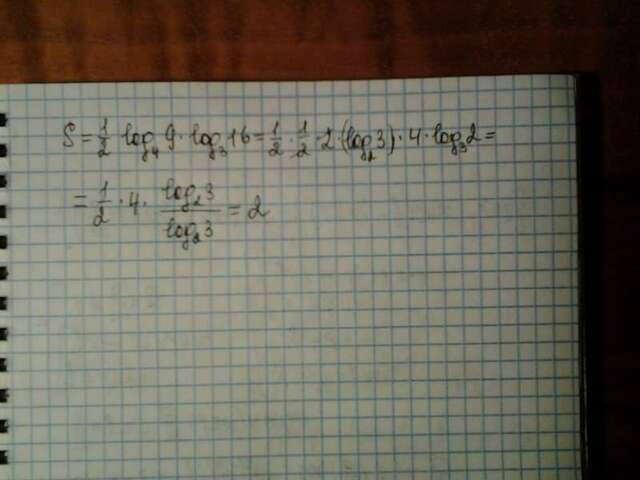 S = 1/2 log₄9 · log₃16 = 1/2 · 1/2 · 2 · (log₂3) · 4 · log₃2 =
= 1/2 · 4 · log₂3/log₂3 = 2